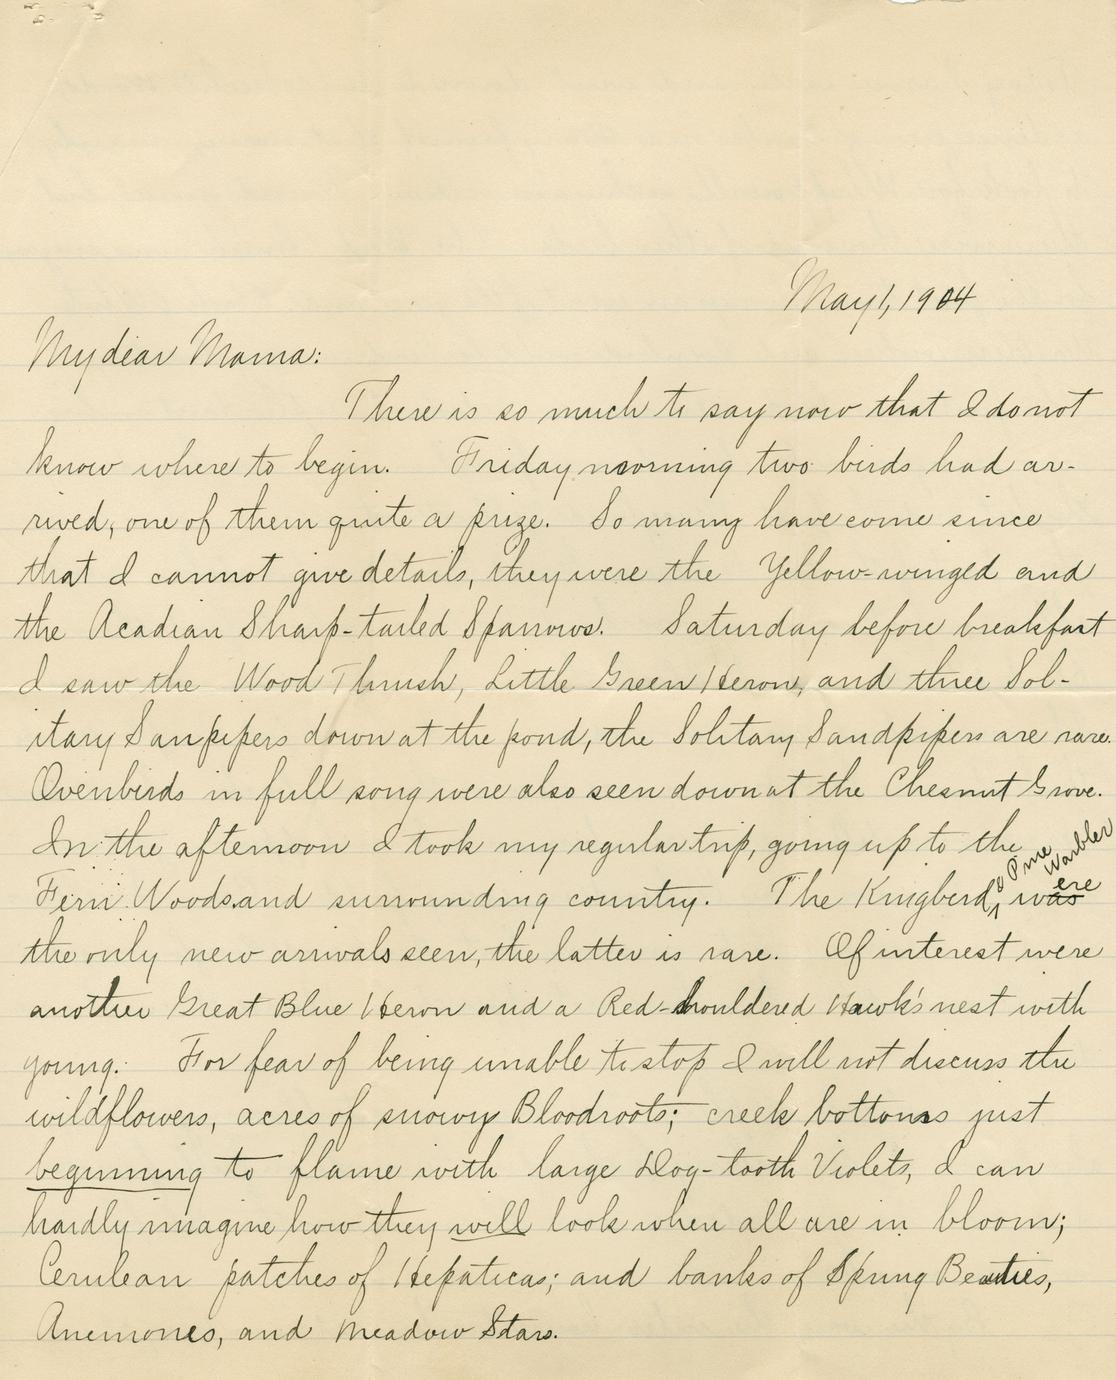 May 1, 1904
My dear Mama:
There is so much to say now that I do not
know where to begin. Friday morning two birds had ar-
rived, one of them quite a prize. So many have come since
that I cannot give details, they were the Yellow-winged and
the Acadian Sharp-tailed Sparrows. Saturday before breakfast
I saw the Wood Thrush, Little Green Heron, and three Sol-
itary Sanpipers down at the pond, the Solitary Sandpipers are rare.
Ovenbirds in full song were also seen down at the Chesnut Grove.
In the afternoon I took my regular trip, going up to the
Fern Woods and surrounding country. The Kingbird, & Pine Warbler was ere
the only new arrivals seen, the latter is rare. Of interest were
another Great Blue Heron and a Red-shouldered Hawk's nest with
young. For fear of being unable to stop I will not discuss the
wildflowers, acres of snowy Bloodroots; creek bottoms just
beginning to flame with large Dog-tooth Violets, I can
hardly imagine how they will look when all are in bloom;
Cerulean patches of Hepaticas; and banks of Spring Beauties,
Anemones, and Meadow Stars.